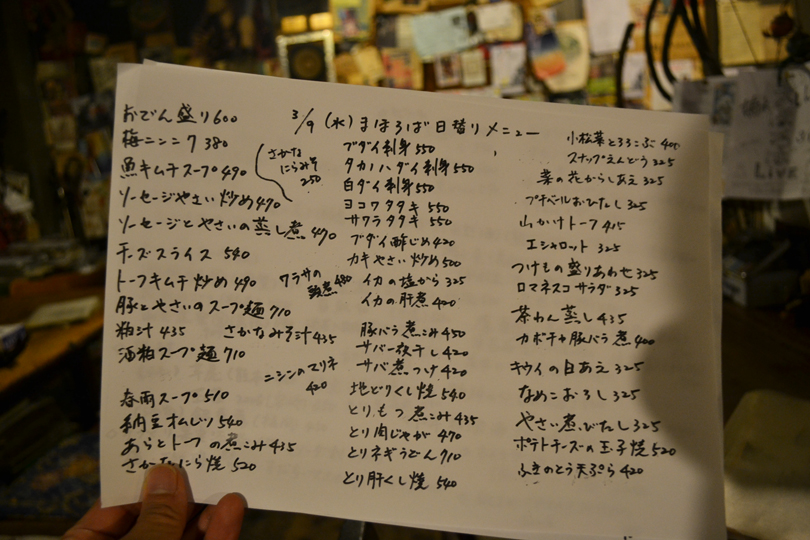 3/9(水)まほろば日替りメニュー
おでん盛り600
梅ニンニク380
魚キムチスープ490
さかな
にらみそ
250
ソーセージやさい炒め490
ソーセージとやさいの蒸し煮490
チーズスライス 540
トーフキムチ炒め490
ワラサの
煮480
豚とやさいのスープ麺710
粕汁435 さかなみそ汁435
酒粕スープ麺710
ニシンのマリネ
420
春雨スープ510
納豆オムレツ540
あらとトーフの煮こみ435
さかなにら焼 520
ブダイ刺身550
タカノハダイ刺身550
白ダイ刺身550
ヨコワタタキ 550
サワラタタキ 550
ブダイ酢じめ420
カキやさい炒め500
イカの塩から325
イカの肝煮400
豚バラ煮こみ450
サバ一夜干し420
サバ煮つけ420
地どりくし焼540
とりもつ煮こみ435
とり肉じゃが470
とりネギうどん710
とり肝くし焼 540
小松菜ととろろこぶ400
スナップえんどう325
菜の花からしあえ325
プチベールおひたし325
山かけトーフ415
エシャロット 325
つけもの盛りあわせ325
ロマネスコサラダ325
茶わん蒸し435
カボチャ豚バラ煮400
キウイの白あえ325
なめこおろし325
やさい煮びたし325
ポテトチーズの玉子焼520
ふきのとう天ぷら420
LIVE